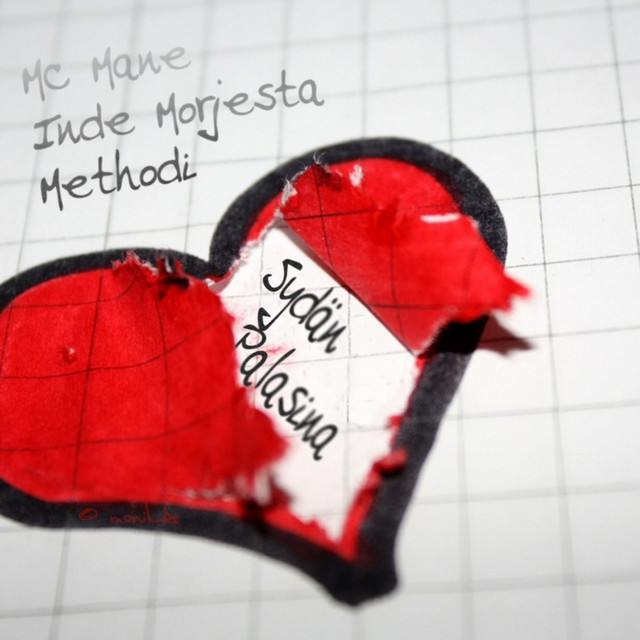 MC Mane
Inde Morjesta
Methodi
Sydän
palasina